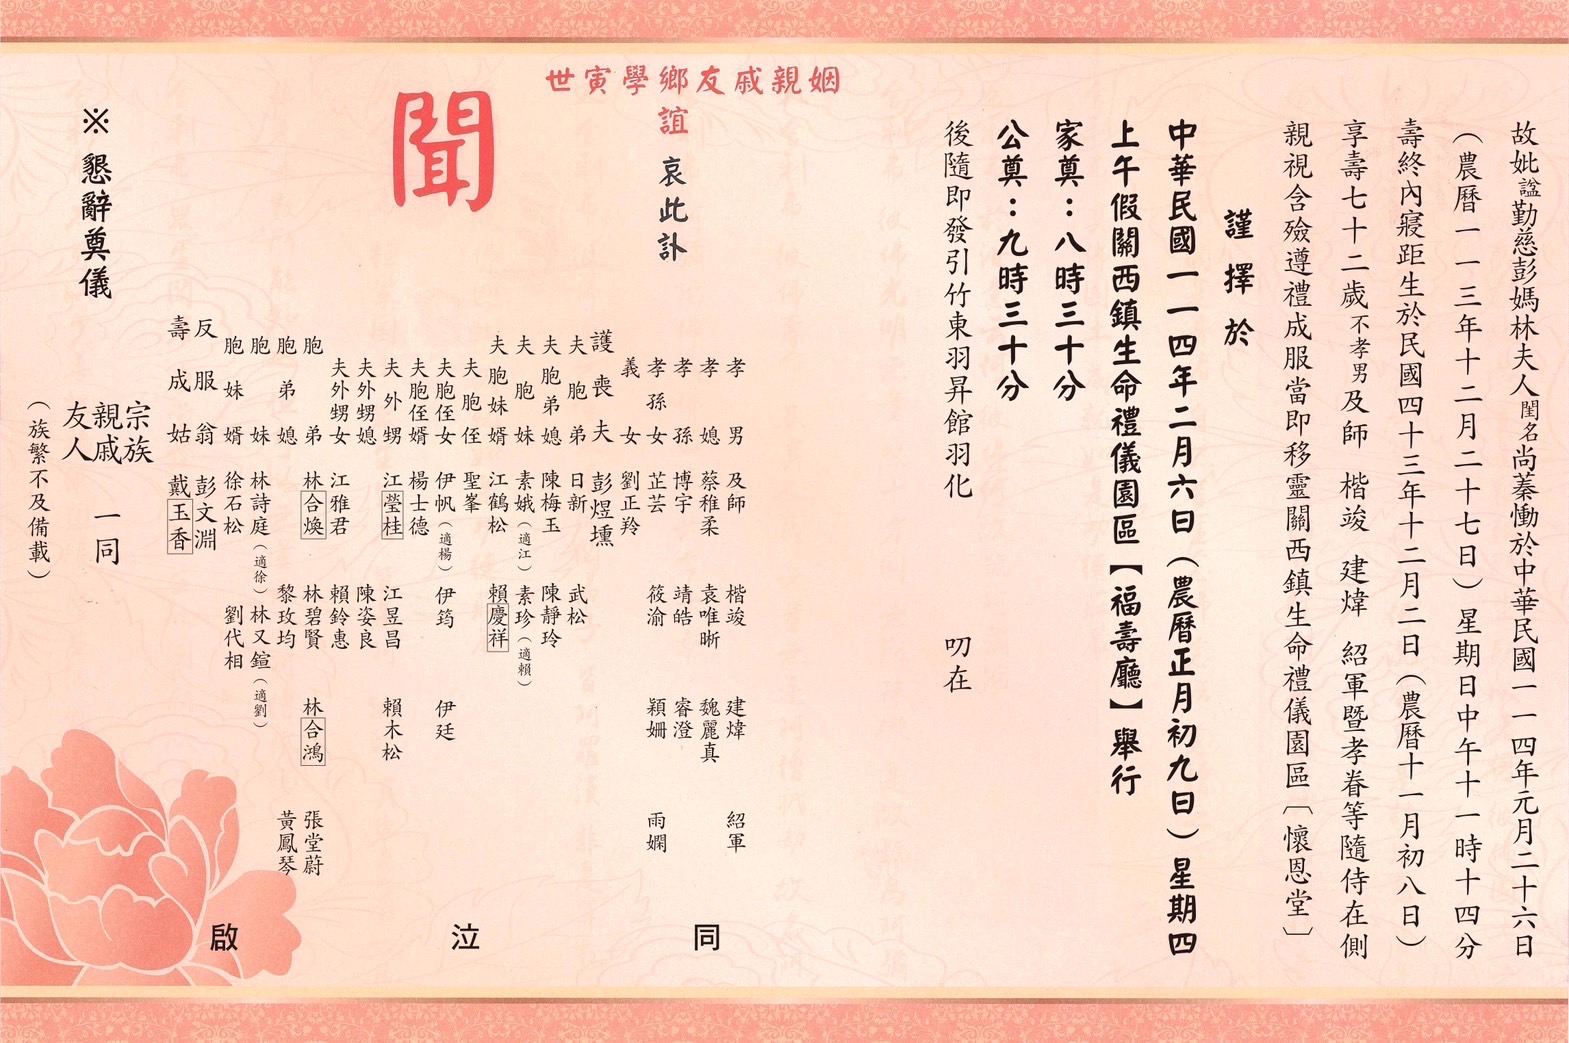 故妣諡勤慈彭媽林夫人閨名尚蓁慟於中華民國一一四年元月二十六日
（農曆一一三年十二月二十七日）星期日中午十一時十四分
壽終內寢距生於民國四十三年十二月二日（農曆十一月初八日）
享壽七十二歲不孝男及師 楷竣 建煒 紹軍暨孝眷等隨侍在側
親視含殮遵禮成服當即移靈關西鎮生命禮儀園區〔懷恩堂〕
謹擇於
中華民國一一四年二月六日（農曆正月初九日）星期四
上午假關西鎮生命禮儀園區【福壽廳】舉行
家奠：八時三十分
公奠：九時三十分
後隨即發引竹東羽昇館羽化 叨在
姻親戚友鄉學寅世
誼 哀此訃
聞
孝男 及師 楷竣 建煒 紹軍
孝媳 蔡稚柔 袁唯晰 魏麗真
孝孫 博宇 靖皓 睿澄
孝孫女 芷芸 筱渝 穎姍 雨嫻
義女 劉正羚
護喪夫 彭煜壎
夫胞弟 日新 武松
夫胞弟媳 陳梅玉 陳靜玲
夫胞妹 素娥（適江） 素珍（適賴）
夫胞妹婿 江鶴松 賴慶祥
夫胞侄 聖峯
夫胞侄女 伊帆（適楊） 伊筠 伊廷
夫胞侄婿 楊士德
夫外甥 江瑩桂 江昱昌 賴木松
夫外甥媳 陳姿良
夫外甥女 江雅君 賴鈴惠
胞弟 林合煥 林碧賢 林合鴻 張堂蔚
胞弟媳 黎玫均 黃鳳琴
胞妹 林詩庭（適徐） 林又鎧（適劉）
胞妹婿 徐石松 劉代相
反服翁 彭文淵
壽成姑 戴玉香
宗族
親戚
友人
一同
（族繁不及備載）
同泣啟
※懇辭奠儀